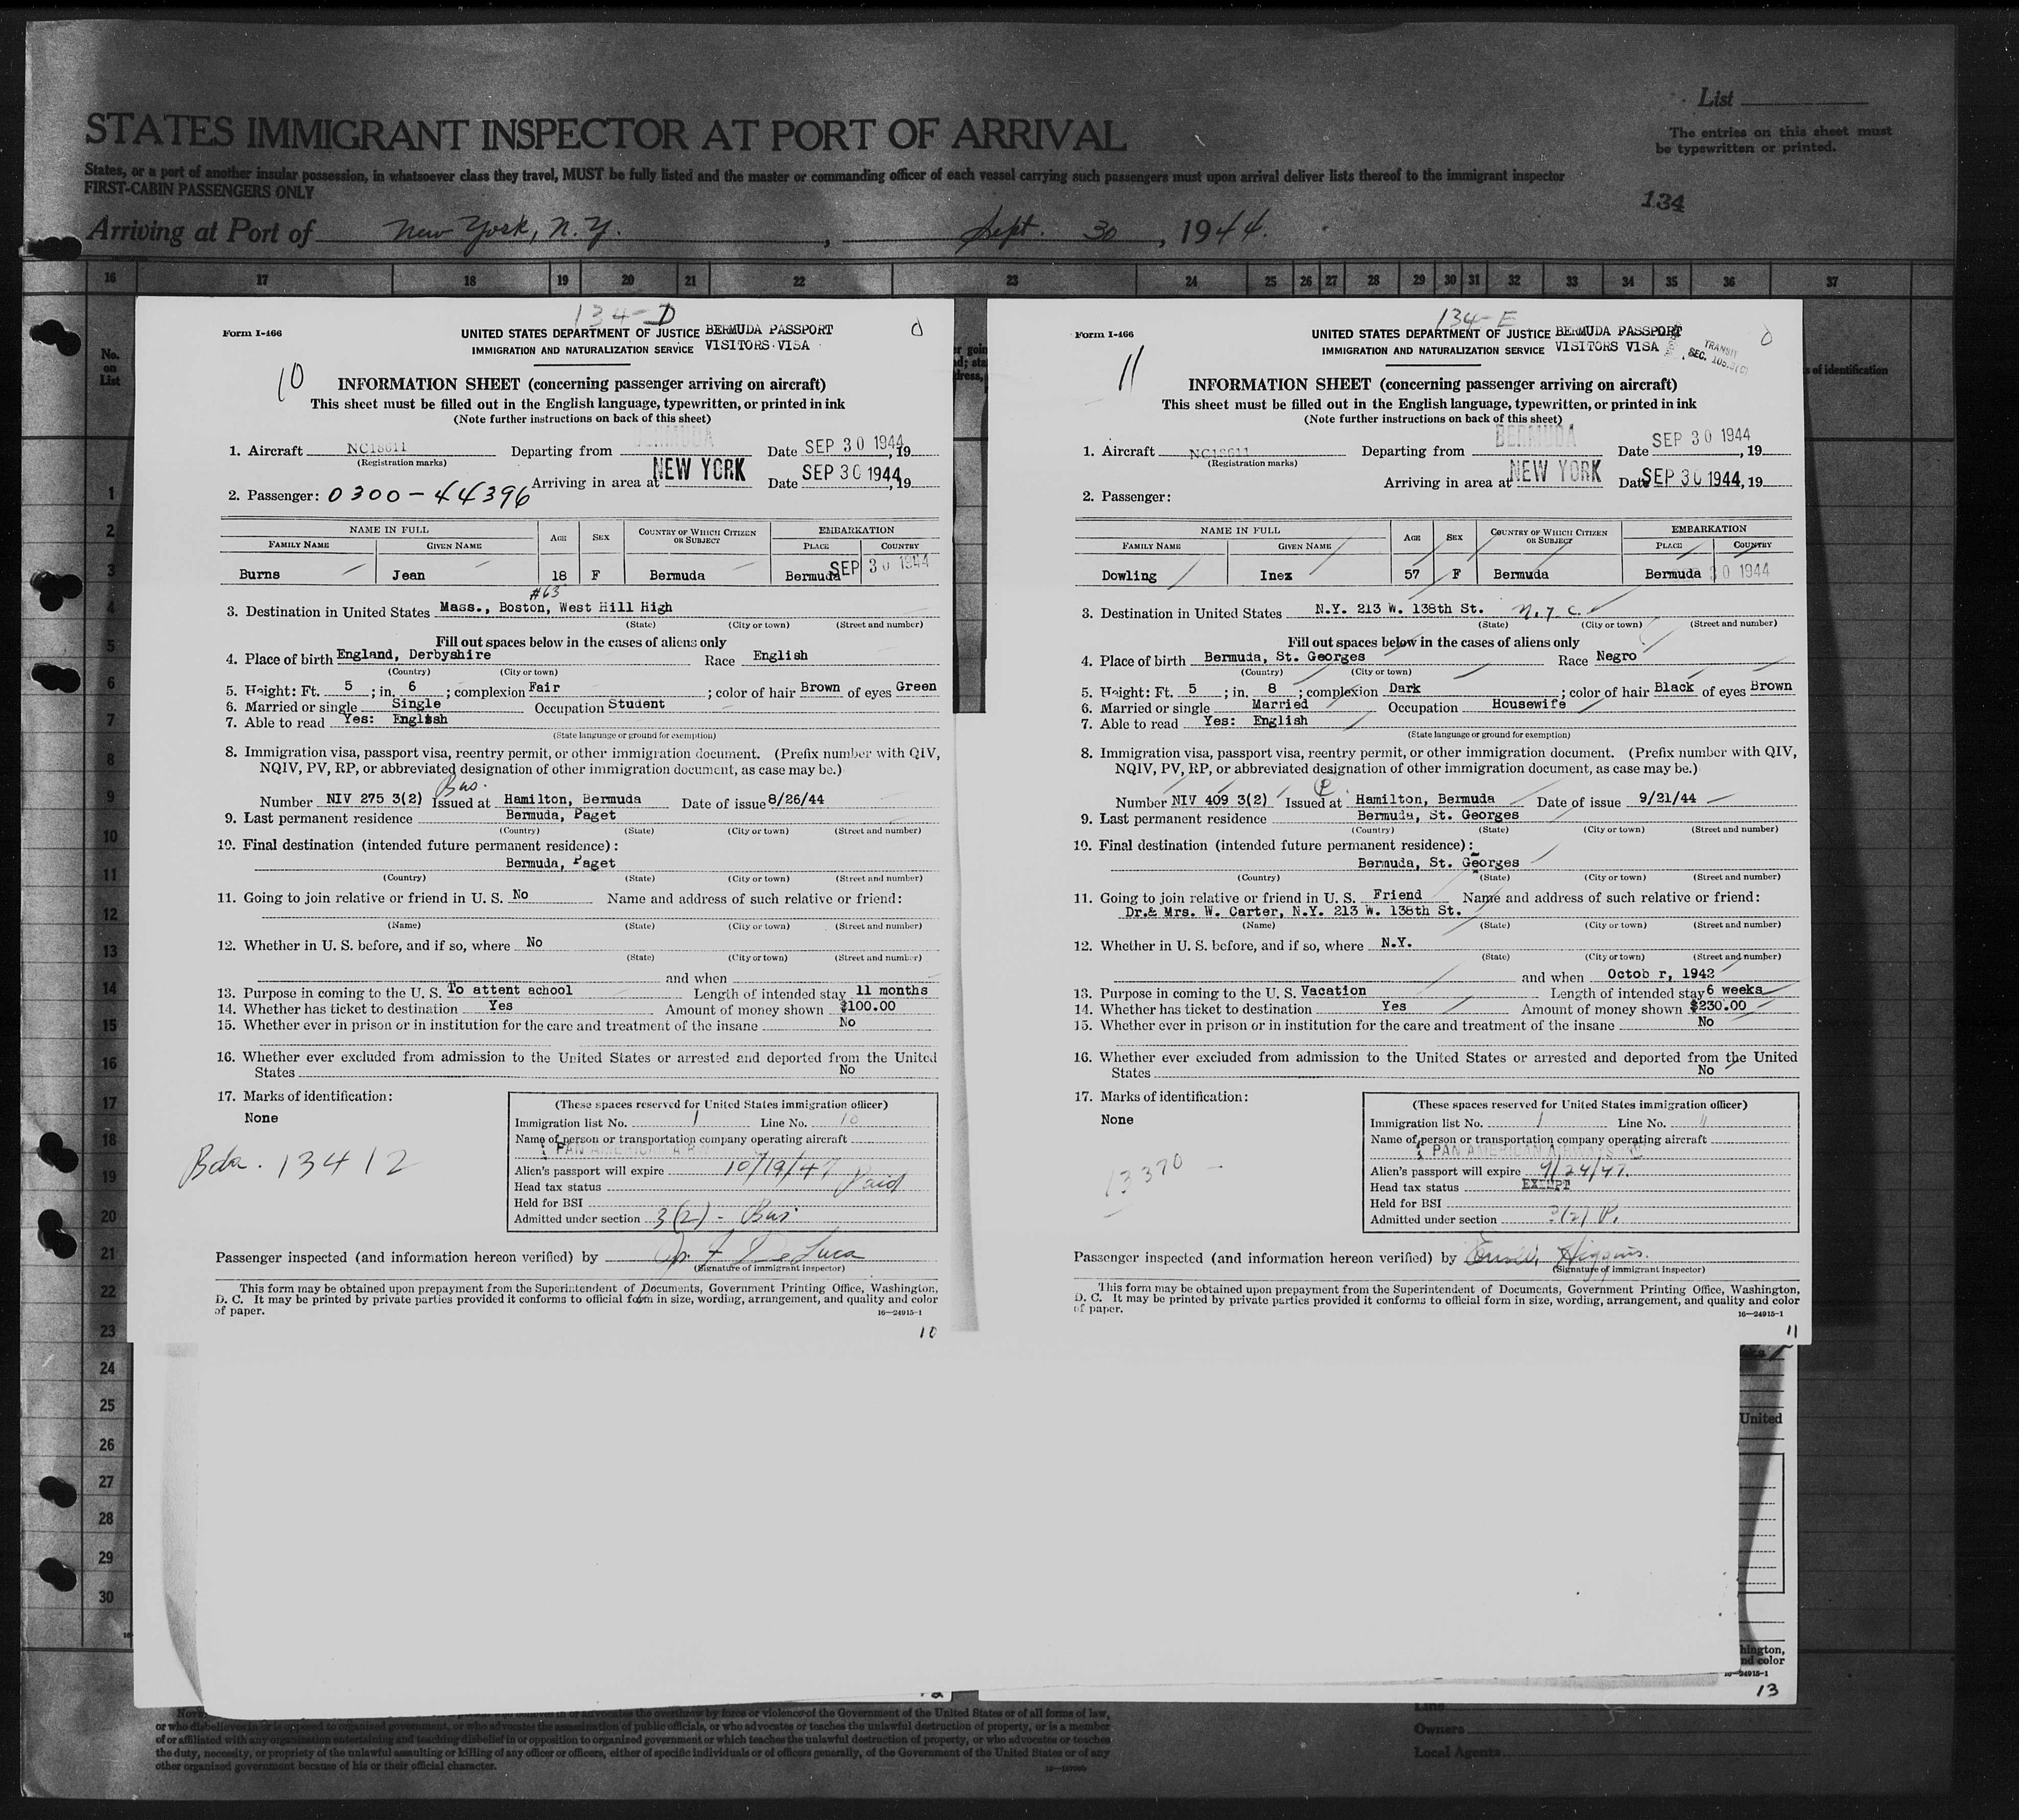 List
STATES IMMIGRANT INSPECTOR AT PORT OF ARRIVAL
The entries on this sheet must
be typewritten or printed.
States, or a port of another insular possession, in whatsoever class they travel, MUST be fully listed and the master or commanding officer of each vessel carrying such passengers must upon arrival deliver lists thereof to the immigrant inspector
FIRST-CABIN PASSENGERS ONLY
134
Arriving at Port of New York, N.Y., Sept. 30, 1944.
16 17 18 19 20 21 22 23 24 25 26 27 28 29 30 31 32 33 34 35 36 37
No.
on
List
s of identification
1
2
3
4
5
6
7
8
9
10
11
12
13
14
15
16
17
18
19
20
21
22
23
24
25
26
27
28
29
30
134-D
Form I-466
UNITED STATES DEPARTMENT OF JUSTICE BERMUDA PASSPORT
IMMIGRATION AND NATURALIZATION SERVICE VISITORS VISA
10
INFORMATION SHEET (concerning passenger arriving on aircraft)
This sheet must be filled out in the English language, typewritten, or printed in ink
(Note further instructions on back of this sheet)
1. Aircraft NC18611 Departing from BERMUDA Date SEP 30 1944, 19
(Registration marks)
Arriving in area at NEW YORK Date SEP 30 1944, 19
2. Passenger: 0300-44396
NAME IN FULL AGE SEX COUNTRY OF WHICH CITIZEN OR SUBJECT EMBARKATION
FAMILY NAME GIVEN NAME PLACE COUNTRY
Burns Jean 18 F Bermuda Bermuda SEP 30 1944
#63
3. Destination in United States Mass., Boston, West Hill High
(State) (City or town) (Street and number)
Fill out spaces below in the cases of aliens only
4. Place of birth England, Derbyshire Race English
(Country) (City or town)
5. Height: Ft. 5; in. 6; complexion Fair; color of hair Brown of eyes Green
6. Married or single Single Occupation Student
7. Able to read Yes: English
(State language or ground for exemption)
8. Immigration visa, passport visa, reentry permit, or other immigration document. (Prefix number with QIV,
NQIV, PV, RP, or abbreviated designation of other immigration document, as case may be.)
Bus.
Number NIV 275 3(2) Issued at Hamilton, Bermuda Date of issue 8/26/44
9. Last permanent residence Bermuda, Paget
(Country) (State) (City or town) (Street and number)
10. Final destination (intended future permanent residence):
Bermuda, Paget
(Country) (State) (City or town) (Street and number)
11. Going to join relative or friend in U. S. No Name and address of such relative or friend:
(Name) (State) (City or town) (Street and number)
12. Whether in U. S. before, and if so, where No
(State) (City or town) (Street and number)
and when
13. Purpose in coming to the U. S. To attent achool Length of intended stay 11 months
14. Whether has ticket to destination Yes Amount of money shown $100.00
15. Whether ever in prison or in institution for the care and treatment of the insane No
16. Whether ever excluded from admission to the United States or arrested and deported from the United
States No
17. Marks of identification:
None
Bda. 13412
(These spaces reserved for United States immigration officer)
Immigration list No. 1 Line No. 10
Name of person or transportation company operating aircraft
PAN AMERICAN AIRW
Alien's passport will expire 10/19/47
Head tax status Paid
Held for BSI
Admitted under section 3(2) - Bus
Passenger inspected (and information hereon verified) by F DeLuca
(Signature of immigrant inspector)
This form may be obtained upon prepayment from the Superintendent of Documents, Government Printing Office, Washington,
D. C. It may be printed by private parties provided it conforms to official form in size, wording, arrangement, and quality and color
of paper.
16—24915-1
10
134-E
Form I-466
UNITED STATES DEPARTMENT OF JUSTICE BERMUDA PASSPORT
IMMIGRATION AND NATURALIZATION SERVICE VISITORS VISA
TRANSIT
SEC. 105.3(C)
11
INFORMATION SHEET (concerning passenger arriving on aircraft)
This sheet must be filled out in the English language, typewritten, or printed in ink
(Note further instructions on back of this sheet)
1. Aircraft NC18611 Departing from BERMUDA Date SEP 30 1944, 19
(Registration marks)
Arriving in area at NEW YORK Date SEP 30 1944, 19
2. Passenger:
NAME IN FULL AGE SEX COUNTRY OF WHICH CITIZEN OR SUBJECT EMBARKATION
FAMILY NAME GIVEN NAME PLACE COUNTRY
Dowling Inez 57 F Bermuda Bermuda 30 1944
3. Destination in United States N.Y. 213 W. 138th St. N.Y.C.
(State) (City or town) (Street and number)
Fill out spaces below in the cases of aliens only
4. Place of birth Bermuda, St. Georges Race Negro
(Country) (City or town)
5. Height: Ft. 5; in. 8; complexion Dark; color of hair Black of eyes Brown
6. Married or single Married Occupation Housewife
7. Able to read Yes: English
(State language or ground for exemption)
8. Immigration visa, passport visa, reentry permit, or other immigration document. (Prefix number with QIV,
NQIV, PV, RP, or abbreviated designation of other immigration document, as case may be.)
P
Number NIV 409 3(2) Issued at Hamilton, Bermuda Date of issue 9/21/44
9. Last permanent residence Bermuda, St. Georges
(Country) (State) (City or town) (Street and number)
10. Final destination (intended future permanent residence):
Bermuda, St. Georges
(Country) (State) (City or town) (Street and number)
11. Going to join relative or friend in U. S. Friend Name and address of such relative or friend:
Dr.& Mrs. W. Carter, N.Y. 213 W. 138th St.
(Name) (State) (City or town) (Street and number)
12. Whether in U. S. before, and if so, where N.Y.
(State) (City or town) (Street and number)
and when Octob r, 1942
13. Purpose in coming to the U. S. Vacation Length of intended stay 6 weeks
14. Whether has ticket to destination Yes Amount of money shown $230.00
15. Whether ever in prison or in institution for the care and treatment of the insane No
16. Whether ever excluded from admission to the United States or arrested and deported from the United
States No
17. Marks of identification:
None
13370
(These spaces reserved for United States immigration officer)
Immigration list No. 1 Line No. 11
Name of person or transportation company operating aircraft
PAN AMERICAN AIRWAYS INC
Alien's passport will expire 9/24/47.
Head tax status EXEMPT
Held for BSI
Admitted under section 3(2) P.
Passenger inspected (and information hereon verified) by Higgins.
(Signature of immigrant inspector)
This form may be obtained upon prepayment from the Superintendent of Documents, Government Printing Office, Washington,
D. C. It may be printed by private parties provided it conforms to official form in size, wording, arrangement, and quality and color
of paper.
16—24915-1
11
United
hington,
nd color
16—24915-1
13
or who disbelieves in or is opposed to organized government, or who advocates the assassination of public officials, or who advocates or teaches the unlawful destruction of property, or is a member
of or affiliated with any organization entertaining and teaching disbelief in or opposition to organized government or which teaches the unlawful destruction of property, or who advocates or teaches
the duty, necessity, or propriety of the unlawful assaulting or killing of any officer or officers, either of specific individuals or of officers generally, of the Government of the United States or of any
other organized government because of his or their official character.
Line
Owners
Local Agents